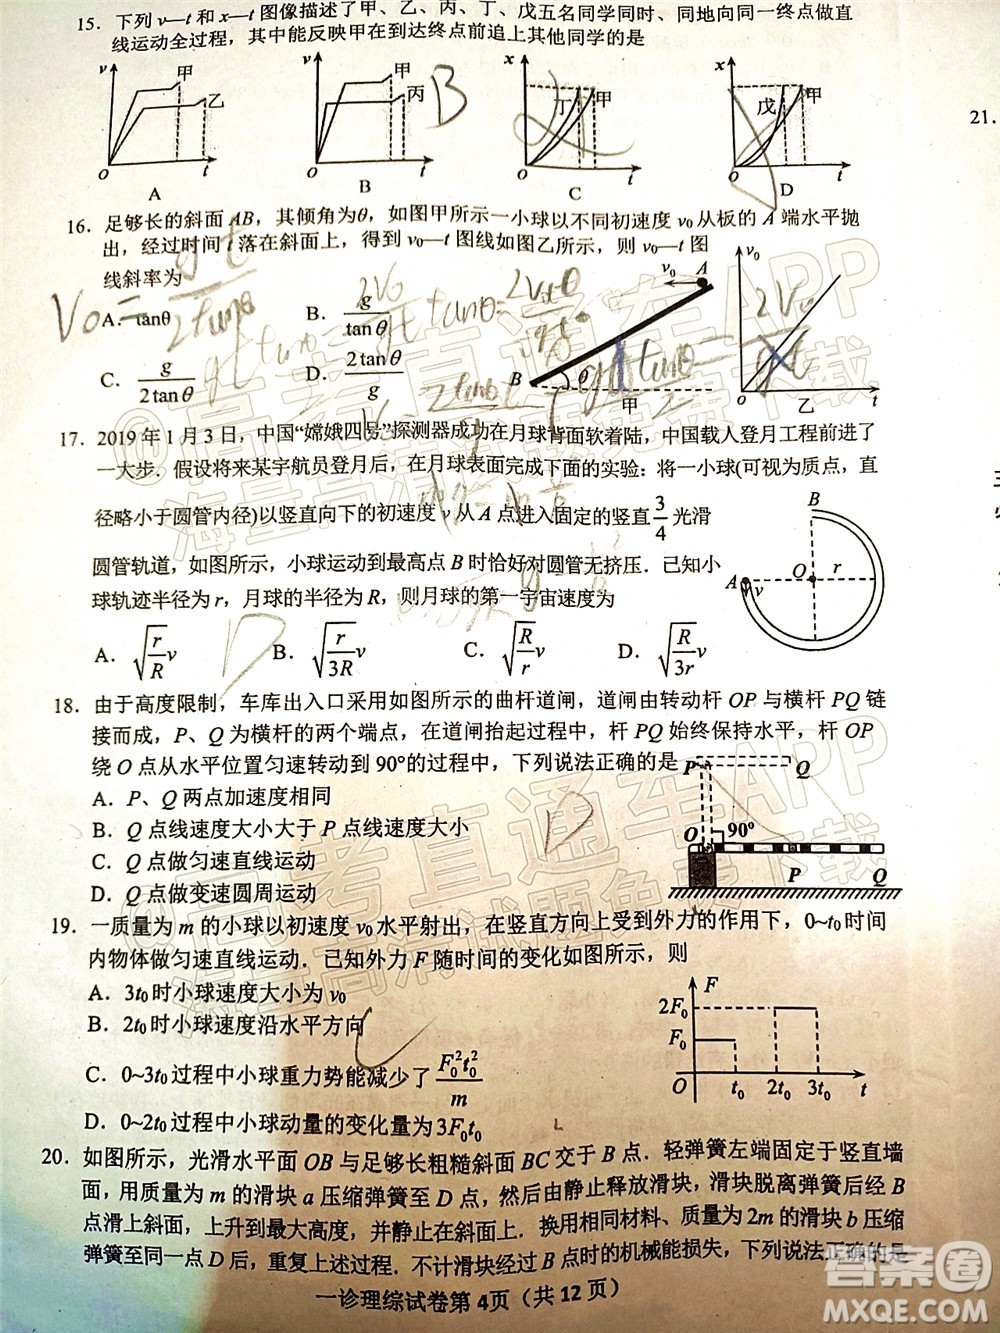 15．下列 v—t 和 x—t 图像描述了甲、乙、丙、丁、戊五名同学同时、同地向同一终点做直
线运动全过程，其中能反映甲在到达终点前追上其他同学的是
v 甲 乙 O t A
v 甲 丙 O t B
x 丁 甲 O t C
x 戊 甲 O t D
B
21．
16．足够长的斜面 AB，其倾角为θ，如图甲所示一小球以不同初速度 v₀ 从板的 A 端水平抛
出，经过时间 t 落在斜面上，得到 v₀—t 图线如图乙所示，则 v₀—t 图
线斜率为
A．tanθ
B．g/tanθ
C．g/2tanθ
D．2tanθ/g
v₀ A B θ 甲
v₀ O t 乙
17．2019 年 1 月 3 日，中国“嫦娥四号”探测器成功在月球背面软着陆，中国载人登月工程前进了
一大步．假设将来某宇航员登月后，在月球表面完成下面的实验：将一小球(可视为质点，直
径略小于圆管内径)以竖直向下的初速度 v 从 A 点进入固定的竖直 3/4 光滑
圆管轨道，如图所示，小球运动到最高点 B 时恰好对圆管无挤压．已知小
球轨迹半径为 r，月球的半径为 R，则月球的第一宇宙速度为
B A v O r
A．√(r/R) v
B．√(r/3R) v
C．√(R/r) v
D．√(R/3r) v
D
18．由于高度限制，车库出入口采用如图所示的曲杆道闸，道闸由转动杆 OP 与横杆 PQ 链
接而成，P、Q 为横杆的两个端点，在道闸抬起过程中，杆 PQ 始终保持水平，杆 OP
绕 O 点从水平位置匀速转动到 90°的过程中，下列说法正确的是
A．P、Q 两点加速度相同
B．Q 点线速度大小大于 P 点线速度大小
C．Q 点做匀速直线运动
D．Q 点做变速圆周运动
D
P Q
O 90°
P Q
19．一质量为 m 的小球以初速度 v₀ 水平射出，在竖直方向上受到外力的作用下，0~t₀ 时间
内物体做匀速直线运动．已知外力 F 随时间的变化如图所示，则
A．3t₀ 时小球速度大小为 v₀
B．2t₀ 时小球速度沿水平方向
C．0~3t₀ 过程中小球重力势能减少了 F₀²t₀²/m
D．0~2t₀ 过程中小球动量的变化量为 3F₀t₀
C
F
2F₀
F₀
O t₀ 2t₀ 3t₀ t
20．如图所示，光滑水平面 OB 与足够长粗糙斜面 BC 交于 B 点．轻弹簧左端固定于竖直墙
面，用质量为 m 的滑块 a 压缩弹簧至 D 点，然后由静止释放滑块，滑块脱离弹簧后经 B
点滑上斜面，上升到最大高度，并静止在斜面上．换用相同材料、质量为 2m 的滑块 b 压缩
弹簧至同一点 D 后，重复上述过程．不计滑块经过 B 点时的机械能损失，下列说法正确的是
一诊理综试卷第 4页（共 12 页）
@高考直通车APP
海量高清试题免费下载
@高考直通车APP
海量高清试题免费下载
答案圈
MXQE.COM